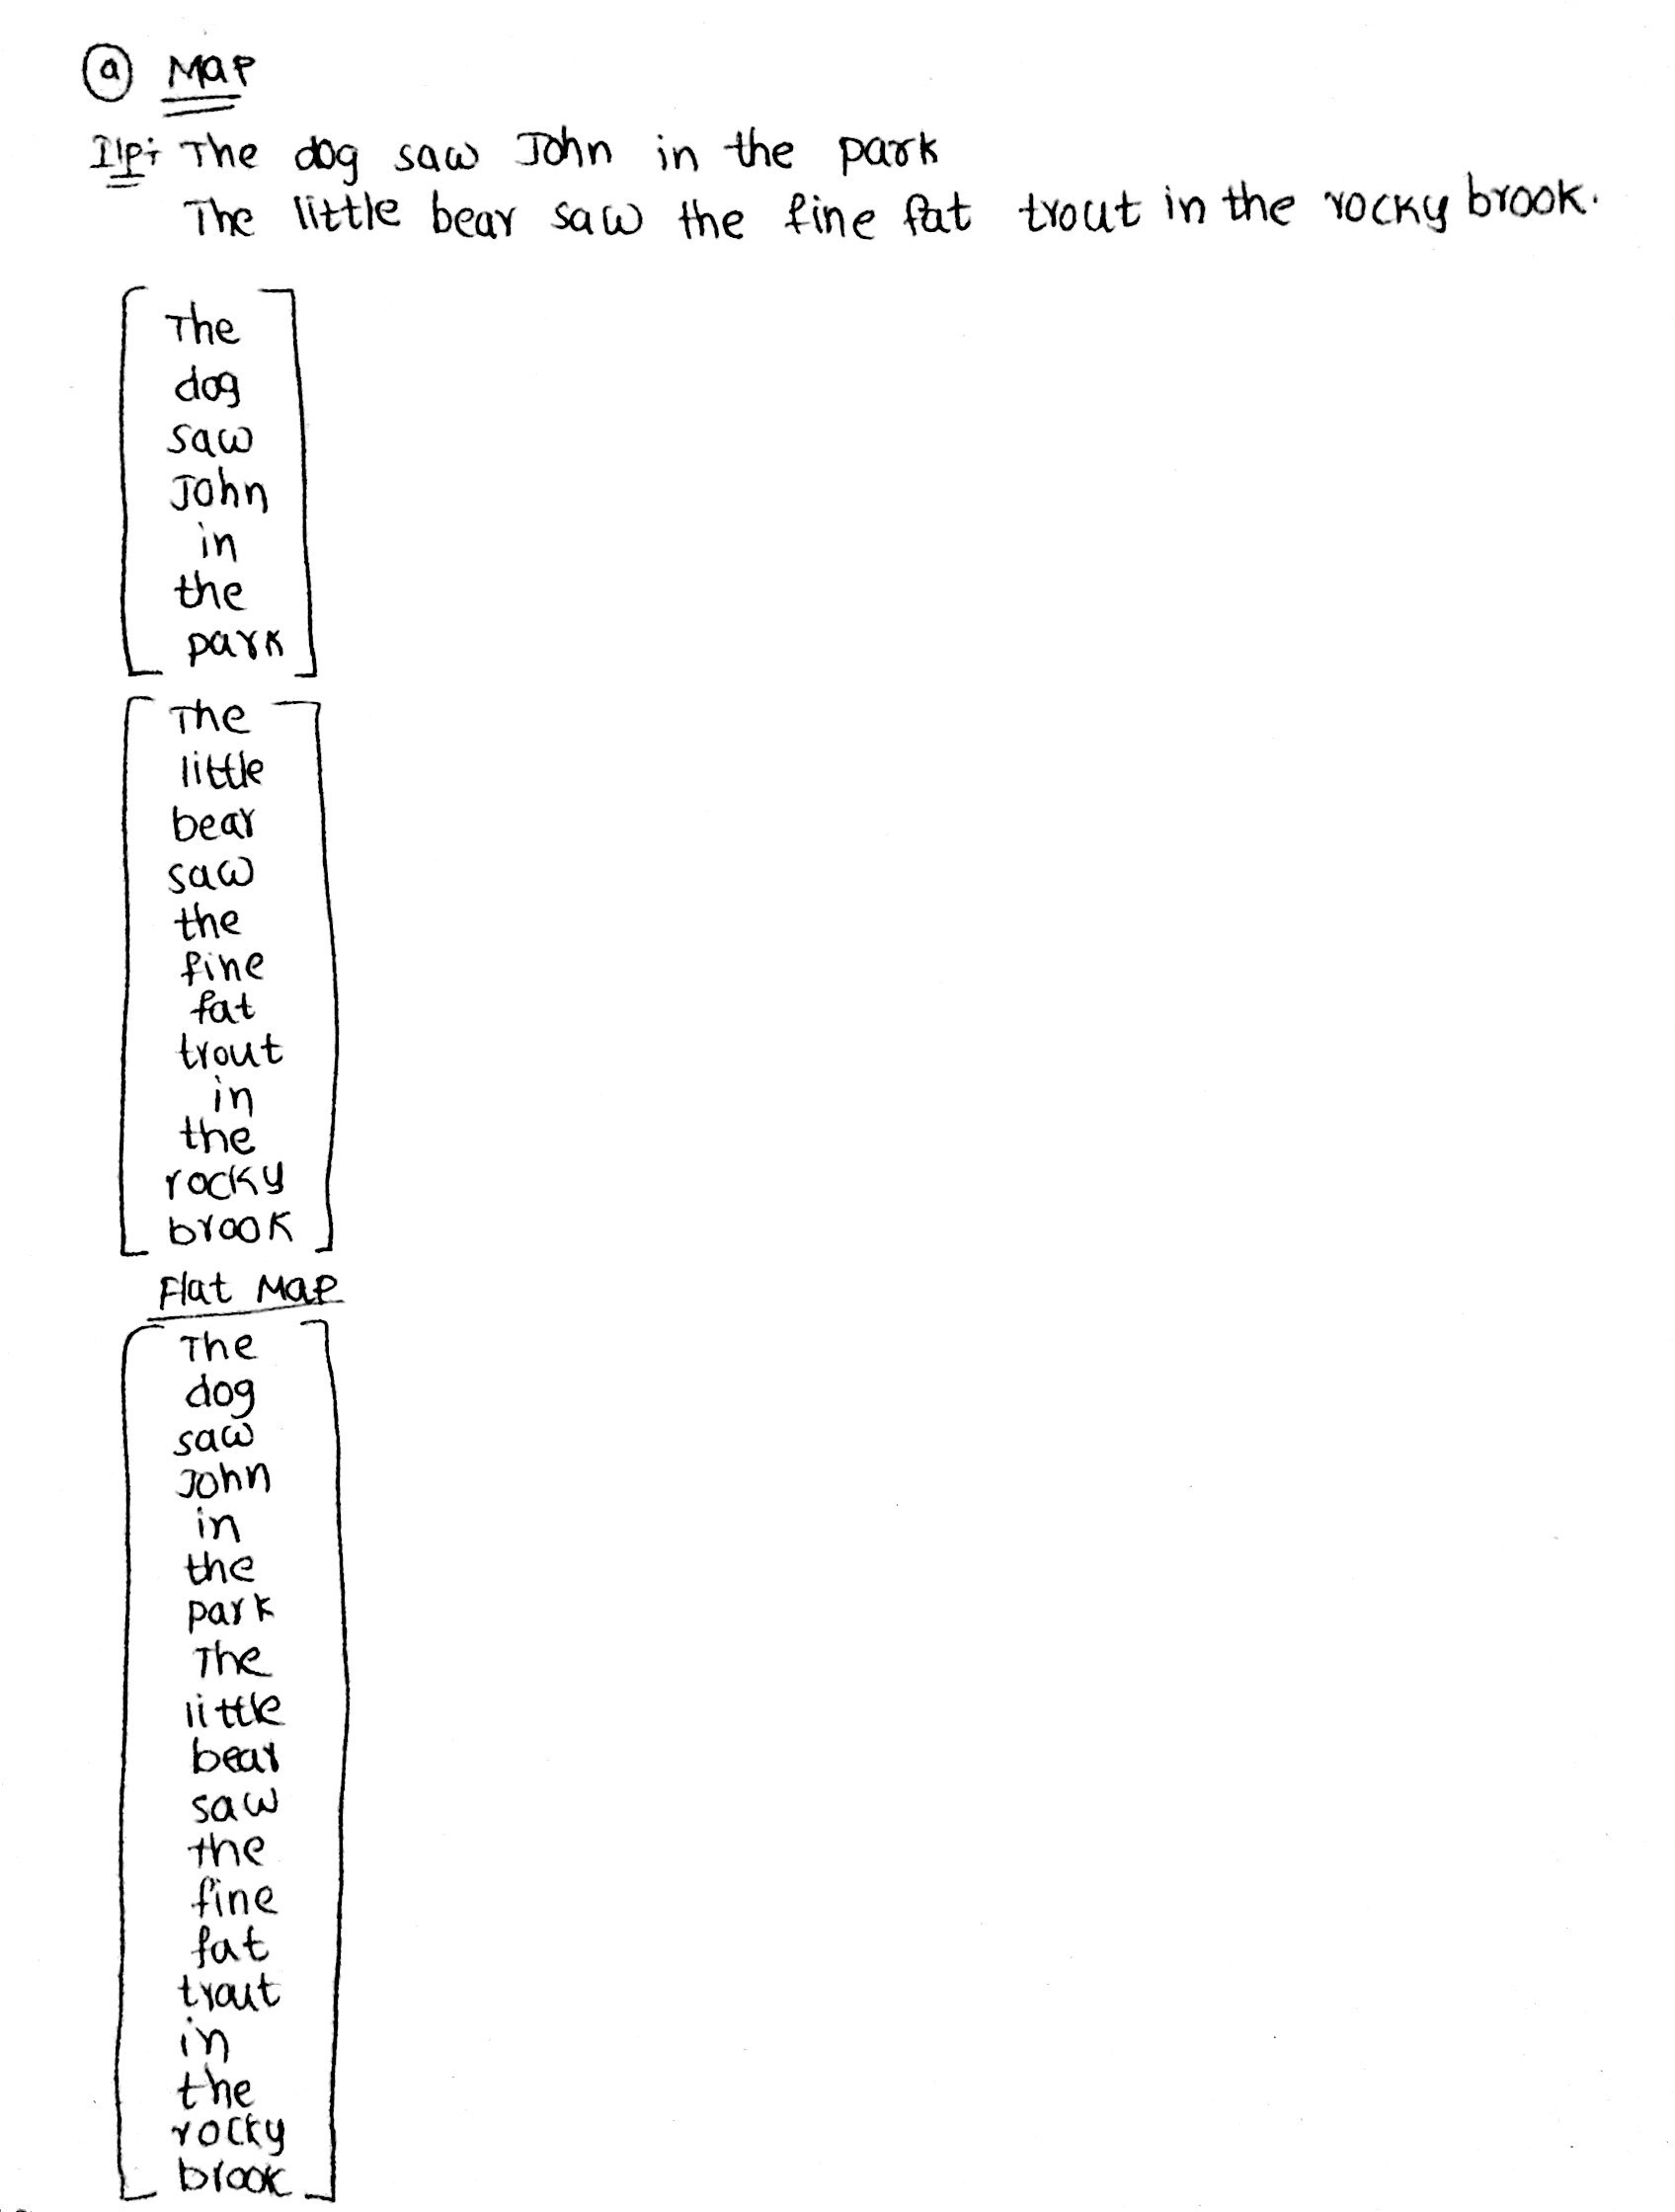 a Map
I/p: The dog saw John in the park
The little bear saw the fine fat trout in the rocky brook.
The
dog
saw
John
in
the
park
The
little
bear
saw
the
fine
fat
trout
in
the
rocky
brook
Flat Map
The
dog
saw
John
in
the
park
The
little
bear
saw
the
fine
fat
trout
in
the
rocky
brook